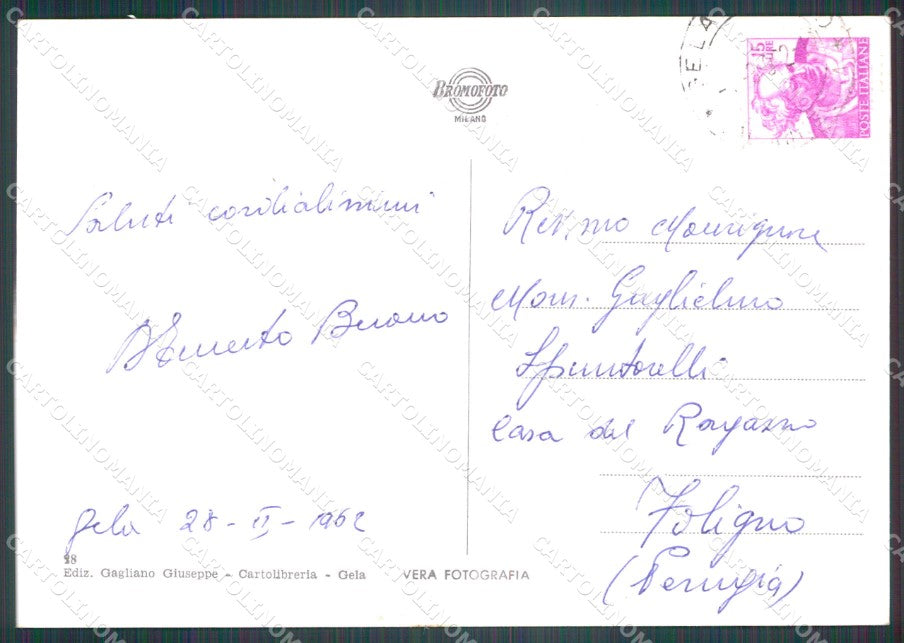 BROMOFOTO
MILANO
GELA
15 LIRE
POSTE ITALIANE
Saluti cordialissimi
Ernesto Buono
Gela 28-II-1962
Rev.mo Monsignore
Mons. Guglielmo
Spuntarelli
Casa del Ragazzo
Foligno
(Perugia)
28
Ediz. Gagliano Giuseppe - Cartolibreria - Gela
VERA FOTOGRAFIA
CARTOLINOMANIA